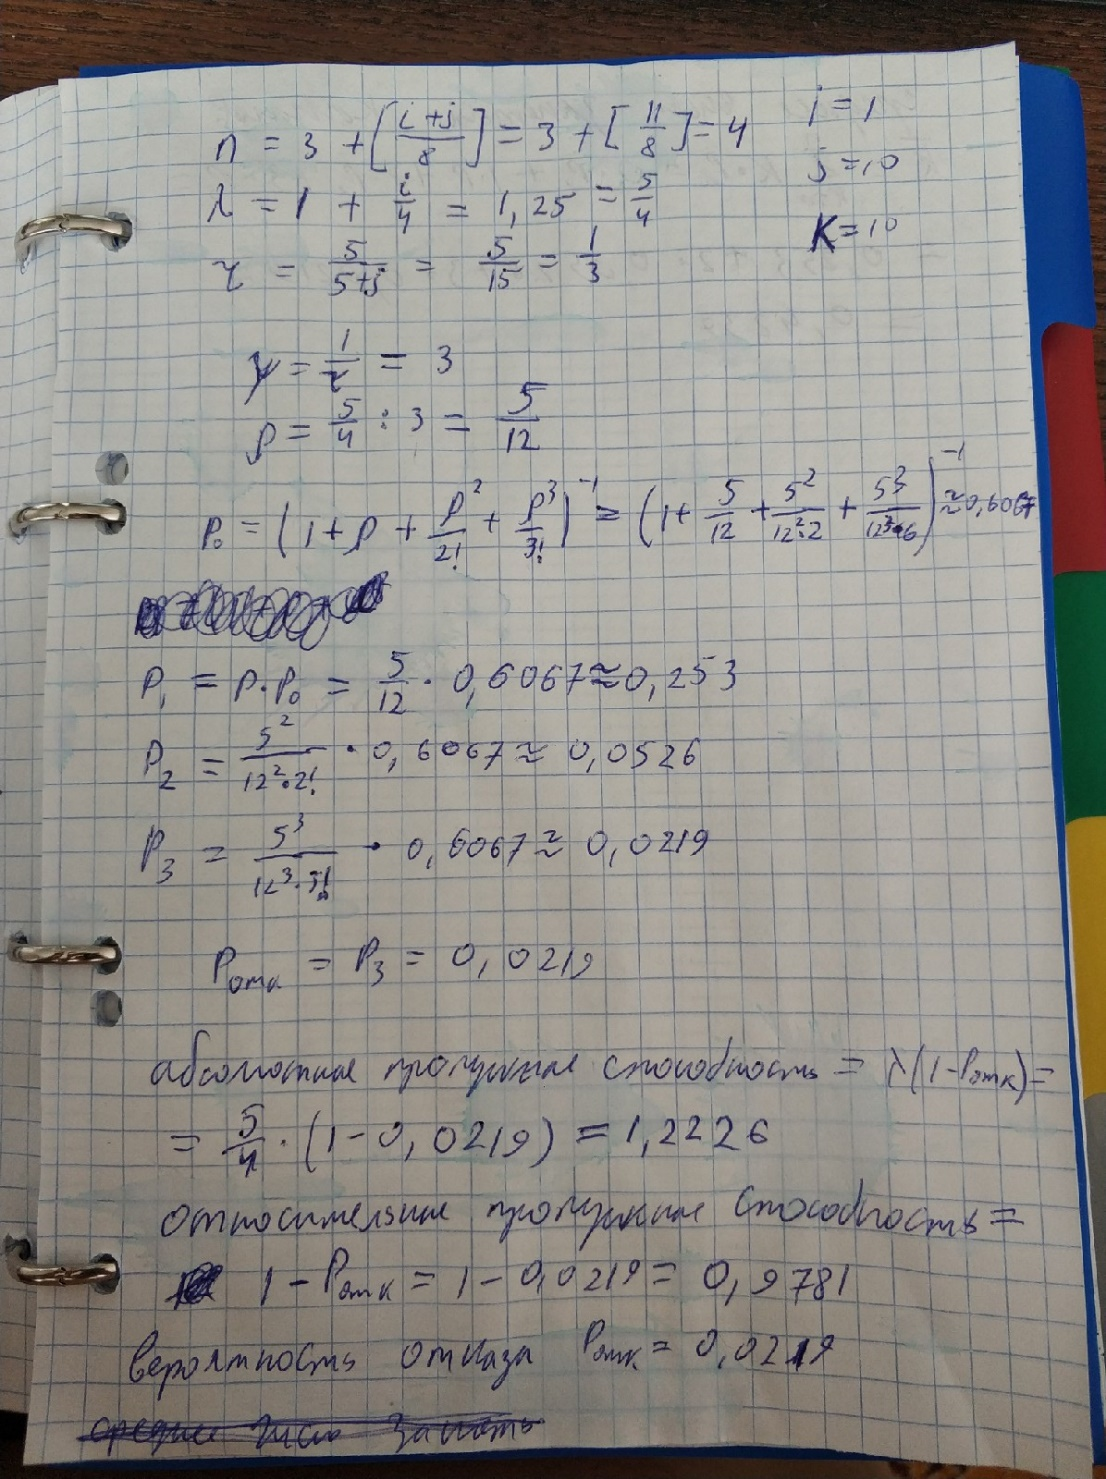 n = 3 + [(i+j)/8] = 3 + [11/8] = 4
i = 1
j = 10
λ = 1 + i/4 = 1,25 = 5/4
K = 10
τ = 5/(5+j) = 5/15 = 1/3
μ = 1/τ = 3
ρ = 5/4 : 3 = 5/12
P₀ = (1 + ρ + ρ²/2! + ρ³/3!)⁻¹ = (1 + 5/12 + 5²/(12²·2) + 5³/(12³·6))⁻¹ ≈ 0,6067
P₁ = ρ·P₀ = 5/12 · 0,6067 ≈ 0,253
P₂ = 5²/(12²·2!) · 0,6067 ≈ 0,0526
P₃ = 5³/(12³·3!) · 0,6067 ≈ 0,0219
Pотк = P₃ = 0,0219
абсолютная пропускная способность = λ(1-Pотк) =
= 5/4 · (1-0,0219) = 1,2226
относительная пропускная способность =
1 - Pотк = 1 - 0,0219 = 0,9781
вероятность отказа Pотк = 0,0219
среднее число